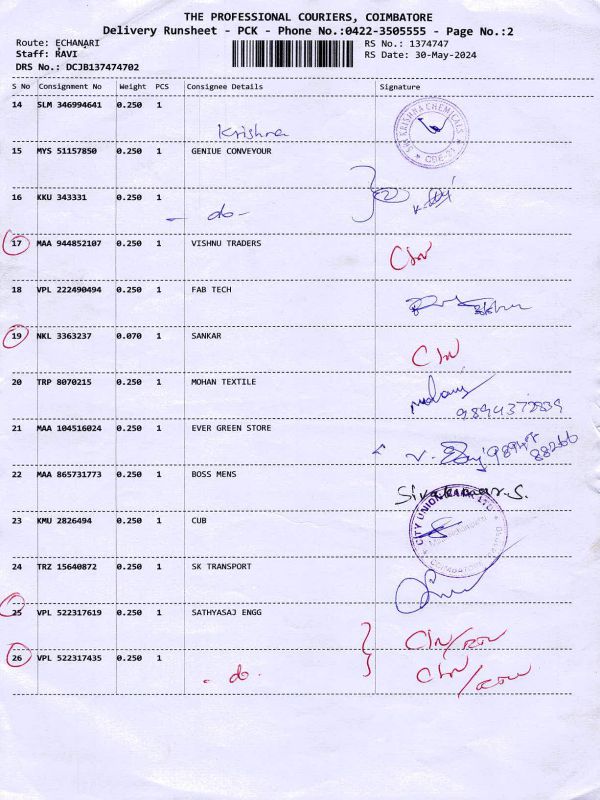 THE PROFESSIONAL COURIERS, COIMBATORE
Delivery Runsheet - PCK - Phone No.:0422-3505555 - Page No.:2
Route: ECHANARI
Staff: RAVI
DRS No.: DCJB137474702
RS No.: 1374747
RS Date: 30-May-2024
S No Consignment No Weight PCS Consignee Details Signature
14 SLM 346994641 0.250 1
Krishna
SRI KRISHNA CHEMICALS
CBE-21
15 MYS 51157850 0.250 1 GENIUE CONVEYOUR
16 KKU 343331 0.250 1
- do -
17 MAA 944852107 0.250 1 VISHNU TRADERS
18 VPL 222490494 0.250 1 FAB TECH
19 NKL 3363237 0.070 1 SANKAR
20 TRP 8070215 0.250 1 MOHAN TEXTILE
21 MAA 104516024 0.250 1 EVER GREEN STORE
22 MAA 865731773 0.250 1 BOSS MENS
Sivakumar.S.
23 KMU 2826494 0.250 1 CUB
CITY UNION BANK LTD
24 TRZ 15640872 0.250 1 SK TRANSPORT
25 VPL 522317619 0.250 1 SATHYASAJ ENGG
26 VPL 522317435 0.250 1
- do -